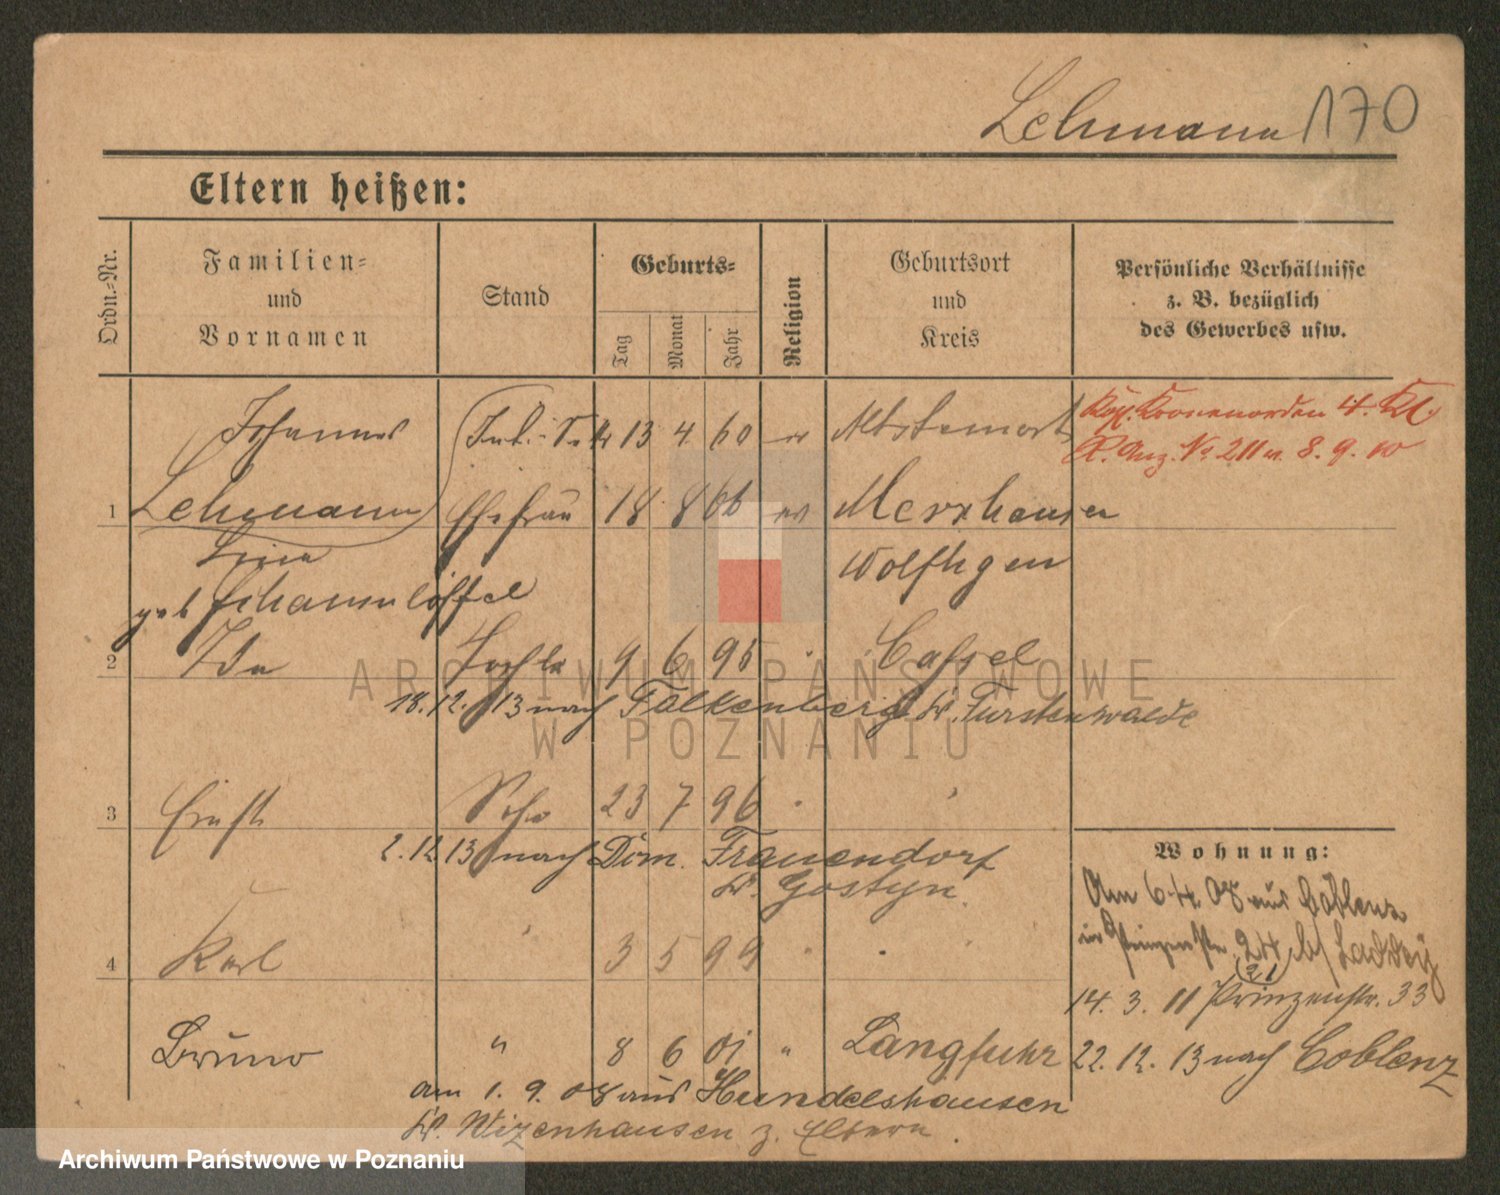 Lehmann 170
Eltern heißen:
Ordn.-Nr.
Familien-
und
Vornamen
Stand
Geburts-
Tag
Monat
Jahr
Religion
Geburtsort
und
Kreis
Persönliche Verhältnisse
z. B. bezüglich
des Gewerbes usw.
Johannes 13 4 60 ev
Kgl. Kronenorden 4. Kl.
R. Anz. No 211 v. 8. 9. 10
1 Lehmann Ehefrau 18 8 66 ev Merxhausen
Wolfhgen
geb
2 Ida Tochter 9 6 95 Cassel
18.12.13 nach Falkenberg Kr. Fürstenwalde
3 Ernst Sohn 23 7 96
2.12.13 nach Dom. Frauendorf
Kr. Gostyn.
4 Karl " 3 5 99
Bruno " 8 6 01 " Langfuhr
am 1. 9. 08 aus Hundelshausen
Kr. Wizenhausen z. Eltern.
Wohnung:
Am 6.4.08 aus Coblenz
in 24 b/
(21)
14. 3. 11 Prinzenstr. 33
22. 12. 13 nach Coblenz
ARCHIWUM PAŃSTWOWE
W POZNANIU
Archiwum Państwowe w Poznaniu